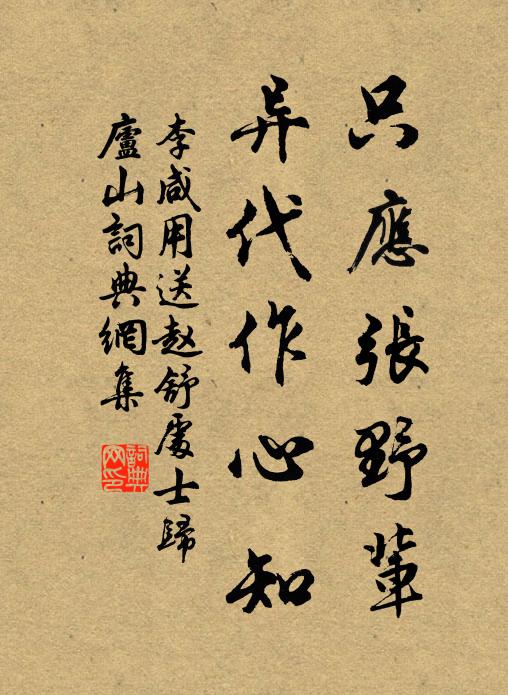 只應張野輩
异代作心知
李咸用送赵舒處士歸
廬山詞典網集
詞典
网印